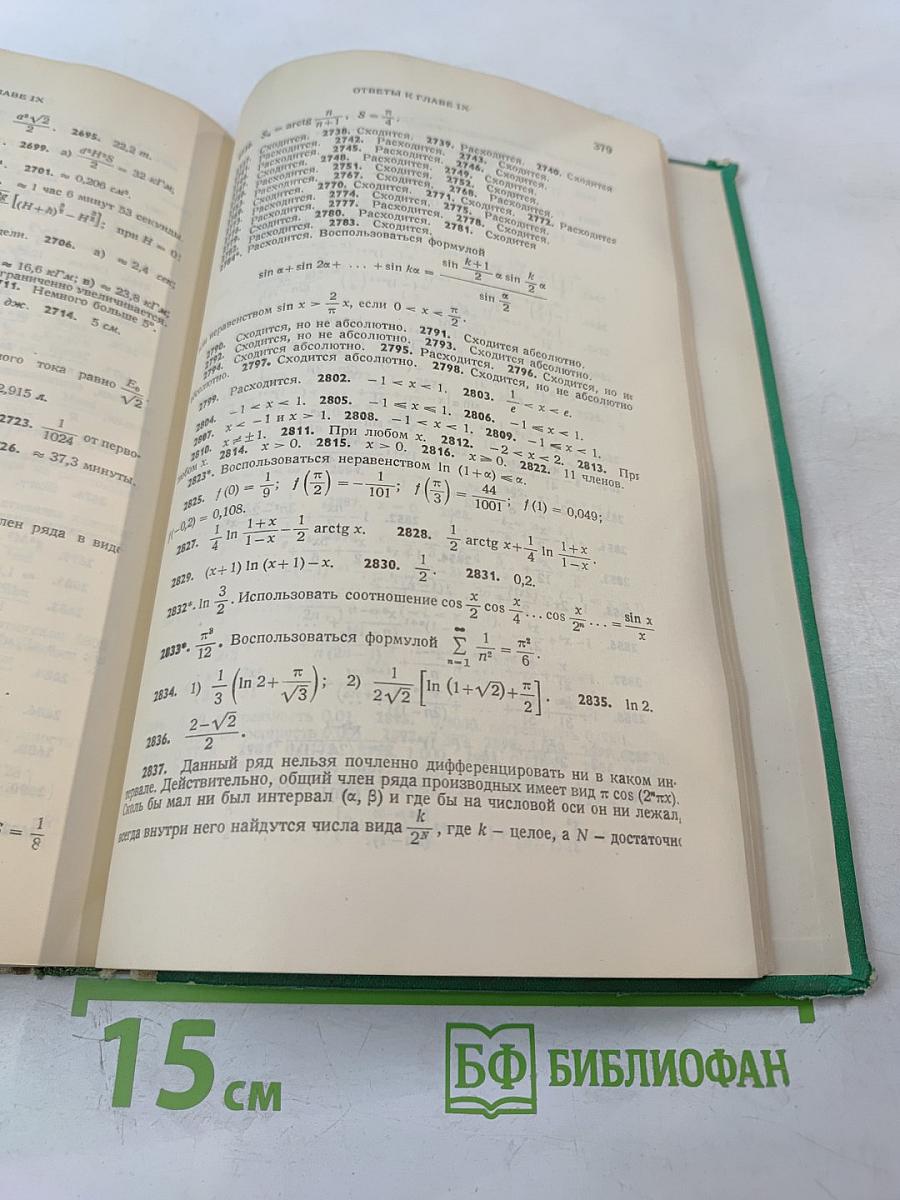 ЛАВЕ IX
a³√2/2. 2695. 22,2 т.
2699. а) d²H²S/2 = 32 кГм,
2701. ≈ 0,206 см³.
≈ 1 час 6 минут 53 секунды
[(H+h)^{3/2} − H^{3/2}]; при H = 0:
дели. 2706. а) ≈ 2,4 сек;
≈ 16,6 кГм; в) ≈ 23,8 кГм;
ограниченно увеличивается.
711. Немного больше 5°.
дж. 2714. 5 см.
ного тока равно E₀/√2
2,915 л.
2723. 1/1024 от перво-
26. ≈ 37,3 минуты.
лен ряда в виде
= 1/8
ОТВЕТЫ К ГЛАВЕ IX
379
Sₙ = arctg n/(n+1), S = π/4.
Сходится. 2738. Сходится. 2739. Расходится. 2740. Сходится
Расходится. 2742. Расходится. 2743. Сходится.
2745. Расходится. 2746. Сходится.
2748. Расходится. 2749. Сходится.
2751. Сходится. 2752. Сходится.
2767. Сходится. 2768. Расходится.
2770. Сходится. 2771. Сходится. 2772. Расходится
2774. Сходится. 2775. Расходится.
2777. Расходится. 2778. Сходится.
2780. Расходится. 2781. Сходится
2783. Сходится.
2784*. Расходится. Воспользоваться формулой
sin α + sin 2α + ... + sin kα = (sin (k+1)/2 α sin k/2 α)/(sin α/2)
неравенством sin x > 2/π x, если 0 < x < π/2.
2790. Сходится, но не абсолютно. 2791. Сходится абсолютно.
2792. Сходится, но не абсолютно. 2793. Сходится абсолютно.
2794. Сходится абсолютно. 2795. Расходится. 2796. Сходится, но не
абсолютно. 2797. Сходится абсолютно. 2798. Сходится, но не абсолютно
2799. Расходится. 2802. −1 < x < 1. 2803. 1/e < x < e.
2804. −1 < x < 1. 2805. −1 ⩽ x ⩽ 1. 2806. −1 ⩽ x < 1.
2807. x < −1 и x > 1. 2808. −1 < x < 1. 2809. −1 ⩽ x < 1.
2810. x ≠ ±1. 2811. При любом x. 2812. −2 < x < 2. 2813. При
любом x. 2814. x > 0. 2815. x > 0. 2816. x ⩾ 0. 2822. 11 членов.
2823*. Воспользоваться неравенством ln (1+α) ⩽ α.
2825. f(0) = 1/9; f(π/2) = −1/101; f(π/3) = 44/1001; f(1) = 0,049;
f(−0,2) = 0,108.
2827. 1/4 ln (1+x)/(1−x) − 1/2 arctg x. 2828. 1/2 arctg x + 1/4 ln (1+x)/(1−x).
2829. (x+1) ln (x+1) − x. 2830. 1/2. 2831. 0,2.
2832*. ln 3/2. Использовать соотношение cos x/2 cos x/4 ... cos x/2ⁿ ... = sin x/x
2833*. π²/12. Воспользоваться формулой ∑_{n=1}^{∞} 1/n² = π²/6.
2834. 1) 1/3 (ln 2 + π/√3); 2) 1/(2√2) [ln (1+√2) + π/2]. 2835. ln 2.
2836. (2−√2)/2.
2837. Данный ряд нельзя почленно дифференцировать ни в каком ин-
тервале. Действительно, общий член ряда производных имеет вид π cos (2ⁿπx).
Сколь бы мал ни был интервал (α, β) и где бы на числовой оси он ни лежал,
всегда внутри него найдутся числа вида k/2ᴺ, где k — целое, а N — достаточно
15 см
БФ БИБЛИОФАН